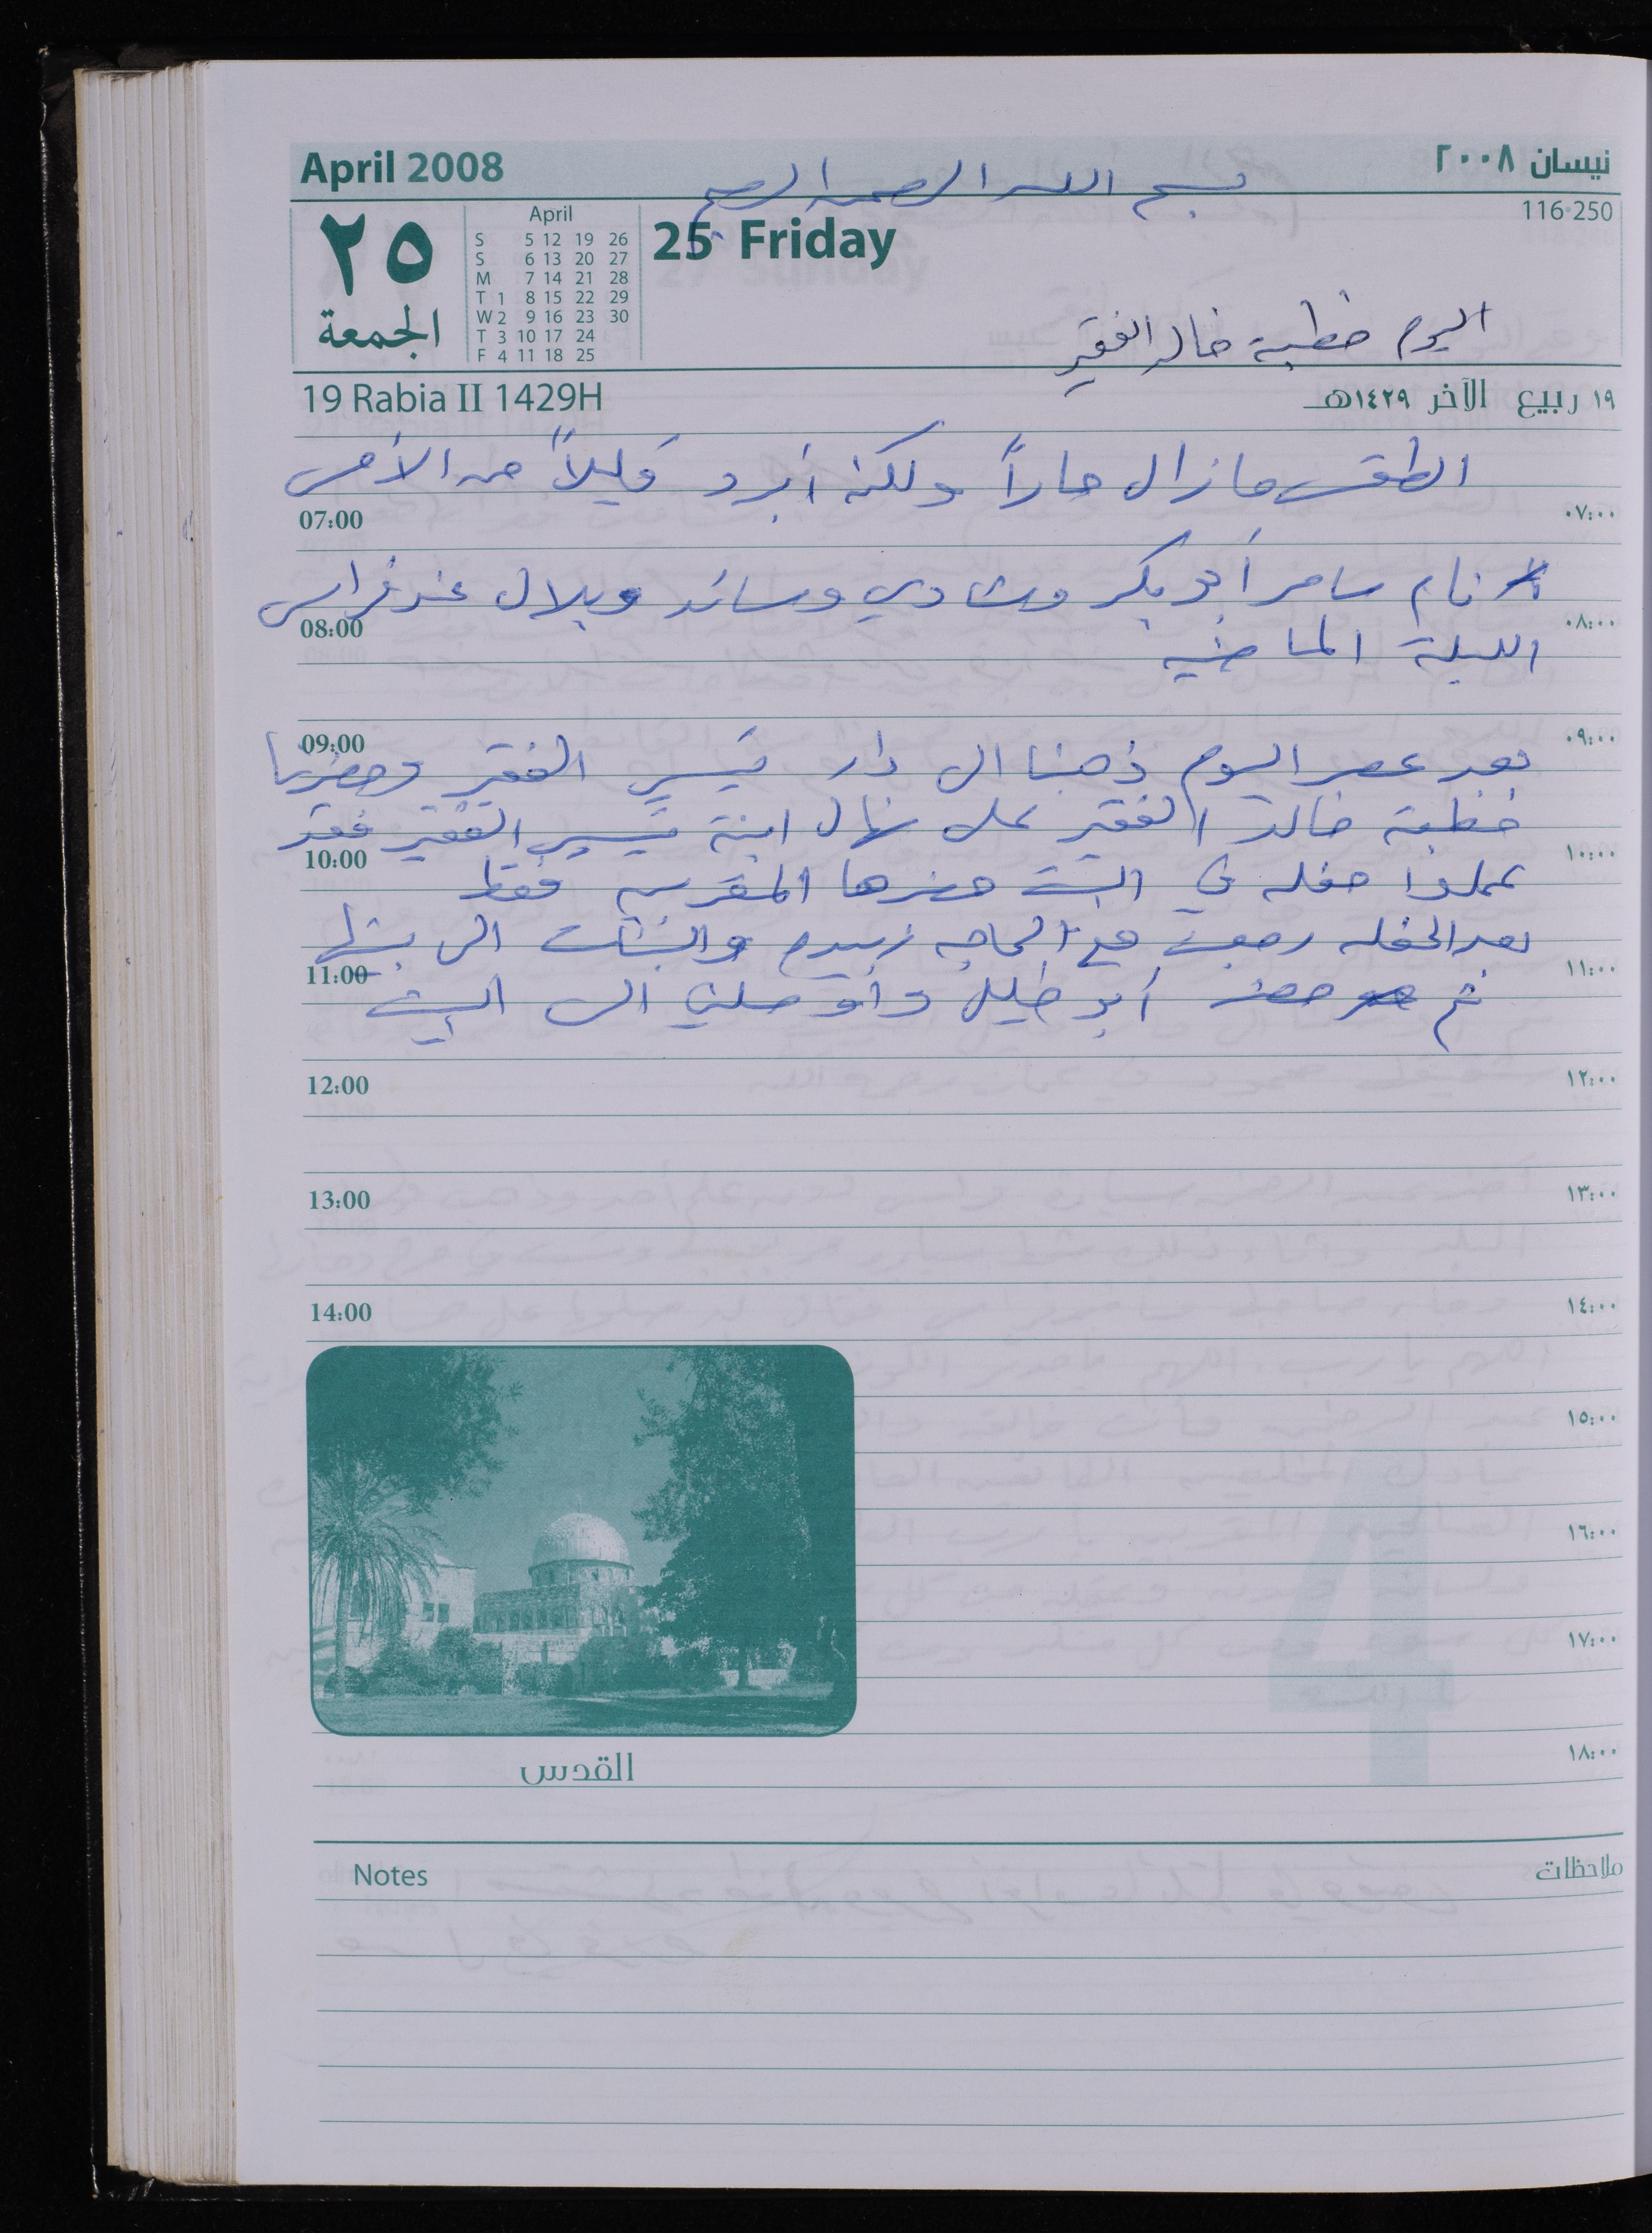 April 2008
نيسان ٢٠٠٨
بسم الله الرحمن الرحيم
٢٥
الجمعة
April
S 5 12 19 26
S 6 13 20 27
M 7 14 21 28
T 1 8 15 22 29
W 2 9 16 23 30
T 3 10 17 24
F 4 11 18 25
25 Friday
116-250
اليوم خطبة خالد الفقير
19 Rabia II 1429H
١٩ ربيع الآخر ١٤٢٩هـ
الطقس مازال حاراً ولكنه أبرد قليلاً من الأمس
07:00 ٠٧:٠٠
نام سامر أبو بكر وشادي وسائد وبلال عند فراس
08:00 ٠٨:٠٠
الليلة الماضيه
09:00 ٠٩:٠٠
بعد عصر اليوم ذهبنا الى دار تيسير الفقير وحضرنا
خطبة خالد الفقير على نهال ابنة تيسير الفقير فقد
10:00 ١٠:٠٠
عملوا حفله في البيت حضرها المقربين فقط
بعد الحفله رجعت مع الحاجه زبيده والبنات الى بيتها
11:00 ١١:٠٠
ثم حضر أبو خليل وأوصلني الى البيت
12:00 ١٢:٠٠
13:00 ١٣:٠٠
14:00 ١٤:٠٠
١٥:٠٠
١٦:٠٠
١٧:٠٠
١٨:٠٠
القدس
Notes
ملاحظات